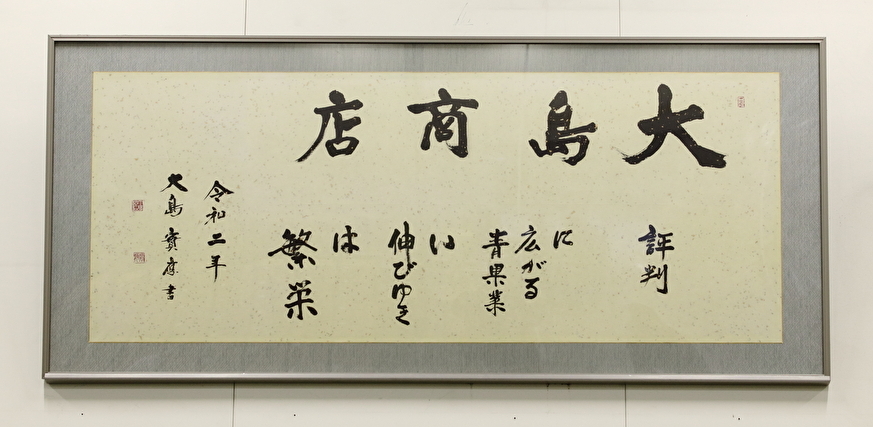 大島商店
評判
に
広がる
青果業
い
伸びゆき
は
繁栄
令和二年
大島 書